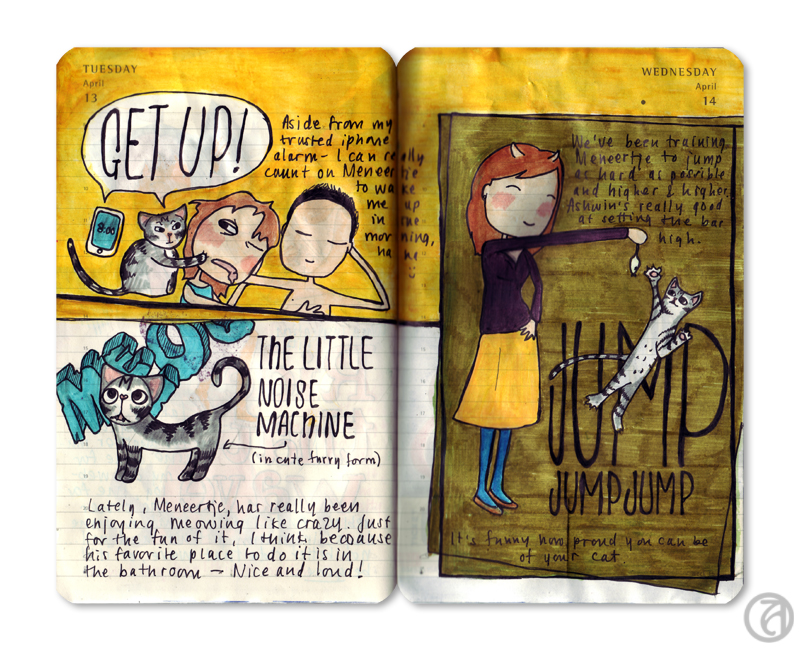 TUESDAY
April
13
GET UP!
Aside from my
trusted iphone
alarm - I can really
count on Meneertje
to wake
me up
in the
morning,
ha ha
8:00
MEOW
THE LITTLE
NOISE
MACHINE
(in cute furry form)
Lately, Meneertje, has really been
enjoying meowing like crazy. Just
for the fun of it, I think becouse
his favorite place to do it is in
the bathroom - Nice and loud!
WEDNESDAY
April
14
We've been training
Meneertje to jump
as hard as possible
and higher & higher.
Ashwin's really good
at setting the bar
high.
JUMP
JUMPJUMP
It's funny how proud you can be
of your cat.